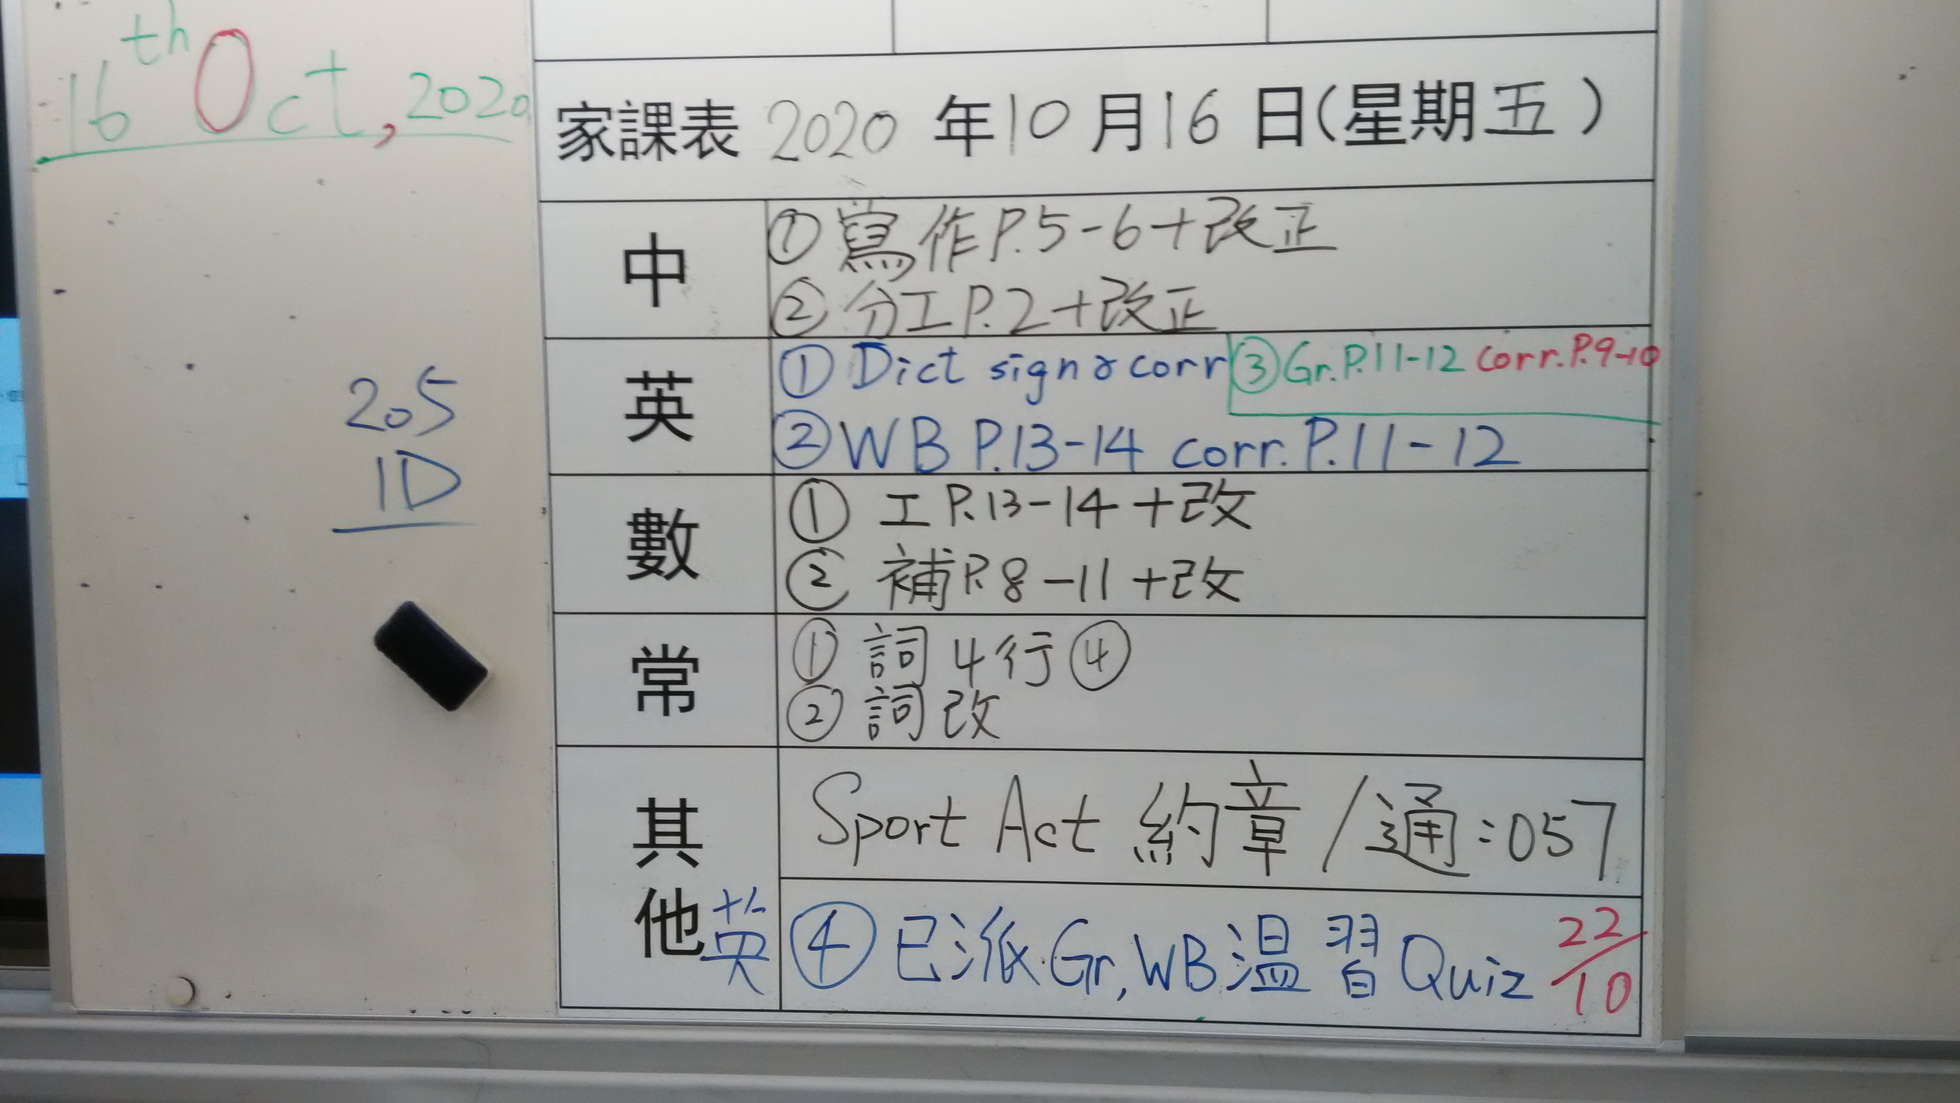 16th Oct, 2020
205
1D
家課表 2020 年 10 月 16 日(星期五)
中
① 寫作P.5-6+改正
② 分工P.2+改正
英
① Dict sign & corr ③ Gr.P.11-12 corr.P.9-10
② WB P.13-14 corr.P.11-12
數
① 工P.13-14+改
② 補P.8-11+改
常
① 詞4行④
② 詞改
其他
Sport Act 約章/通:057
英 ④ 已派Gr,WB溫習Quiz 22/10